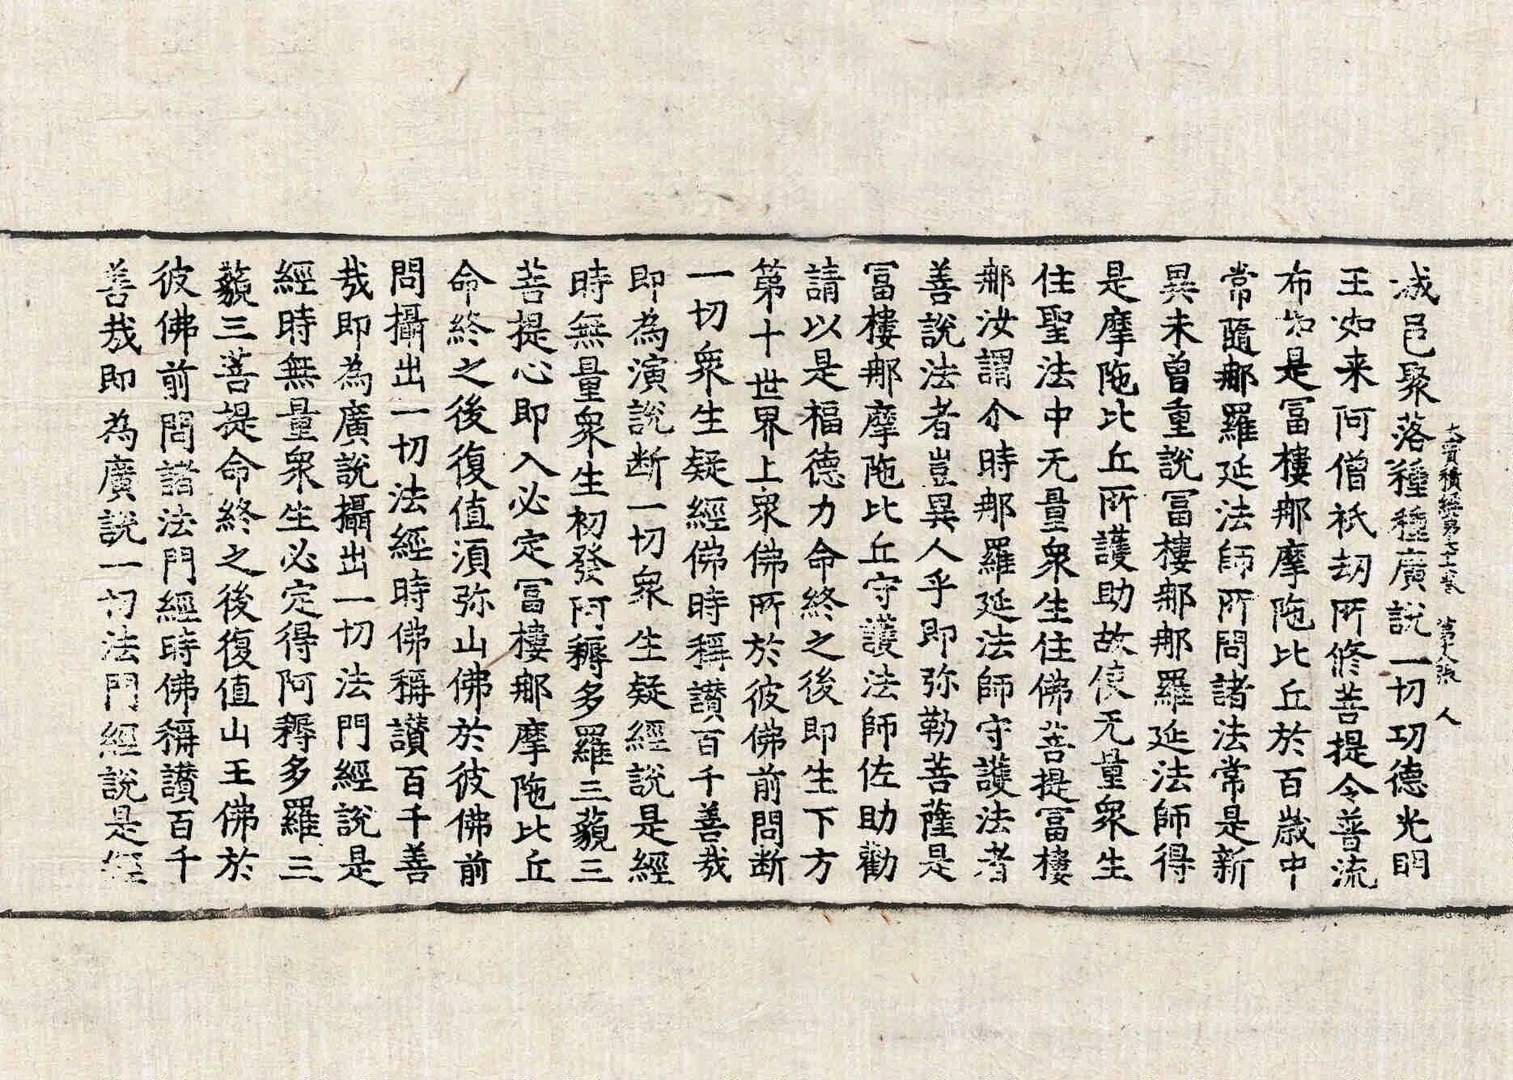 大寶積經第七十七卷 第十八張 人
城邑聚落種種廣說一切功德光明
王如来阿僧祇劫所修菩提令普流
布如是冨樓那摩陁比丘於百歲中
常隨那羅延法師所問諸法常是新
異未曾重說冨樓那那羅延法師得
是摩陁比丘所護助故使无量眾生
住聖法中无量眾生住佛菩提冨樓
那汝謂尒時那羅延法師守護法者
善說法者豈異人乎即弥勒菩薩是
冨樓那摩陁比丘守護法師佐助勸
請以是福德力命終之後即生下方
第十世界上眾佛所於彼佛前問断
一切眾生疑經佛時稱讃百千善哉
即為演說断一切眾生疑經說是經
時無量眾生初發阿耨多羅三藐三
菩提心即入必定冨樓那摩陁比丘
命終之後復值須弥山佛於彼佛前
問攝出一切法經時佛稱讃百千善
哉即為廣說攝出一切法門經說是
經時無量眾生必定得阿耨多羅三
藐三菩提命終之後復值山王佛於
彼佛前問諸法門經時佛稱讃百千
善哉即為廣說一切法門經說是經